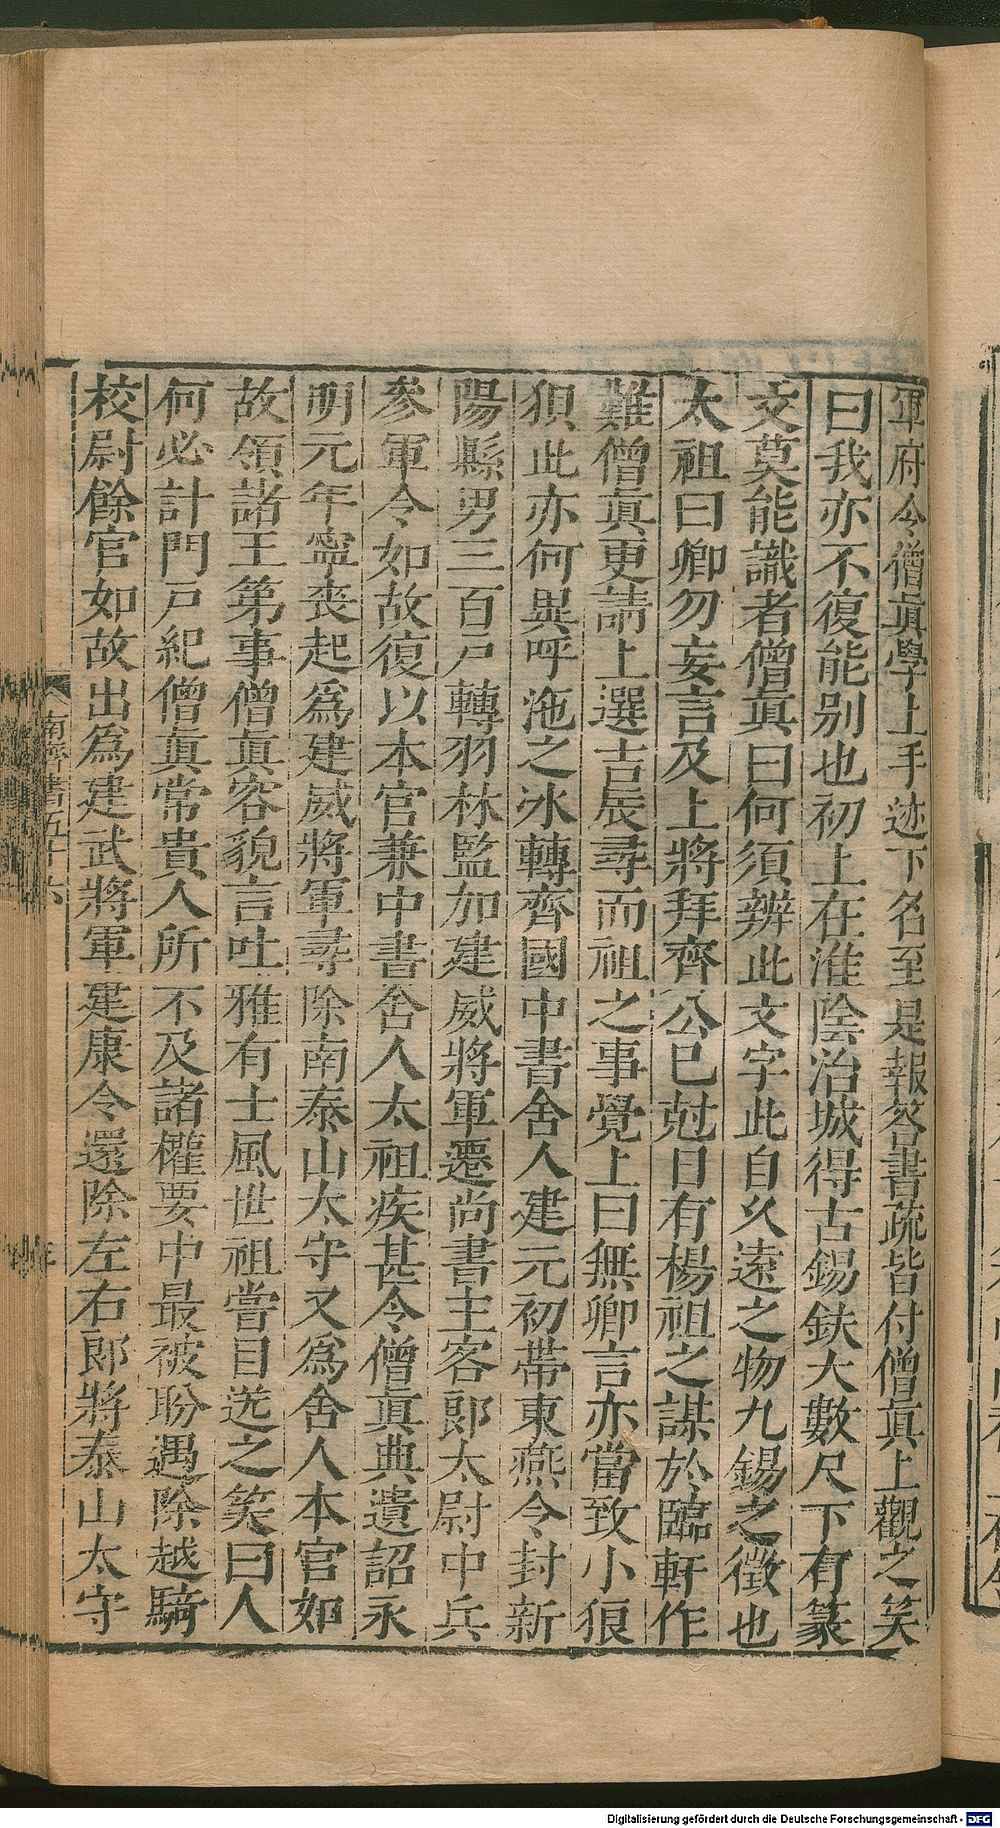 軍府令僧眞學上手迹下名至是報答書疏皆付僧眞上觀之笑
曰我亦不復能别也初上在淮陰治城得古錫鈇大數尺下有篆
文莫能識者僧眞曰何須辨此文字此自久遠之物九錫之徵也
太祖曰卿勿妄言及上將拜齊公已尅日有楊祖之謀於臨軒作
難僧眞更請上選吉辰尋而祖之事覺上曰無卿言亦當致小狼
狽此亦何異呼沲之冰轉齊國中書舍人建元初帶東燕令封新
陽縣男三百戶轉羽林監加建威將軍遷尚書主客郎太尉中兵
參軍令如故復以本官兼中書舍人太祖疾甚令僧眞典遺詔永
明元年寧喪起爲建威將軍尋除南泰山太守又爲舍人本官如
故領諸王第事僧眞容貌言吐雅有士風世祖嘗目送之笑曰人
何必計門戶紀僧眞常貴人所不及諸權要中最被盼遇除越騎
校尉餘官如故出爲建武將軍建康令還除左右郎將泰山太守
南齊書五十六
Digitalisierung gefördert durch die Deutsche Forschungsgemeinschaft - DFG